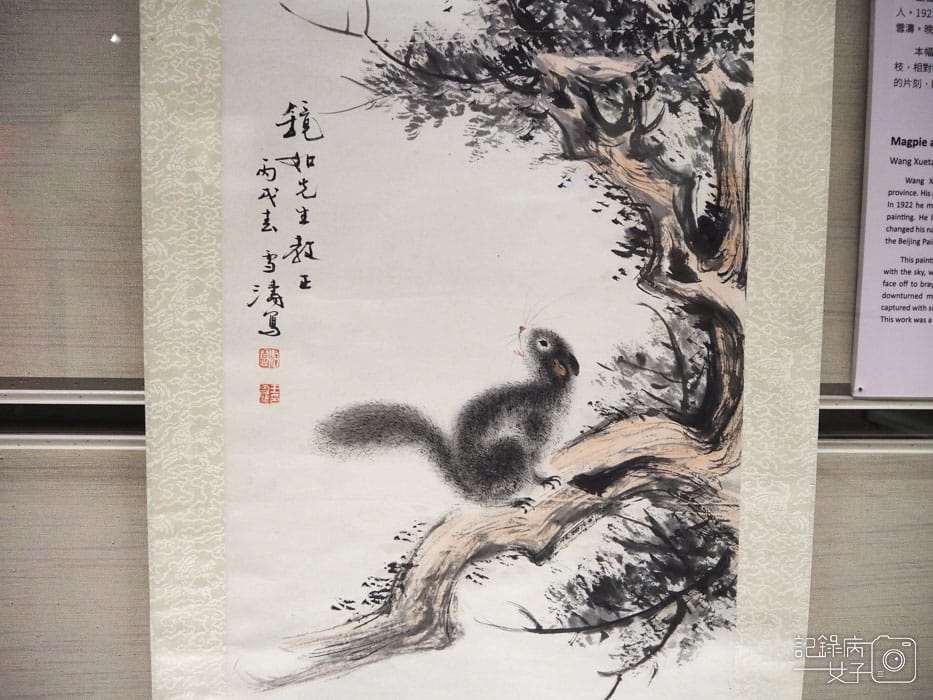 鏡如先生教正
丙戌春 雪濤寫
人。192
雪濤。晚
本幅
枝，相對
的片刻，
Magpie a
Wang Xueta
Wang X
province. His
In 1922 he m
painting. He l
changed his na
the Beijing Pai
This painti
with the sky, w
face off to bray
downturned m
captured with s
This work was a
記錄病
女子